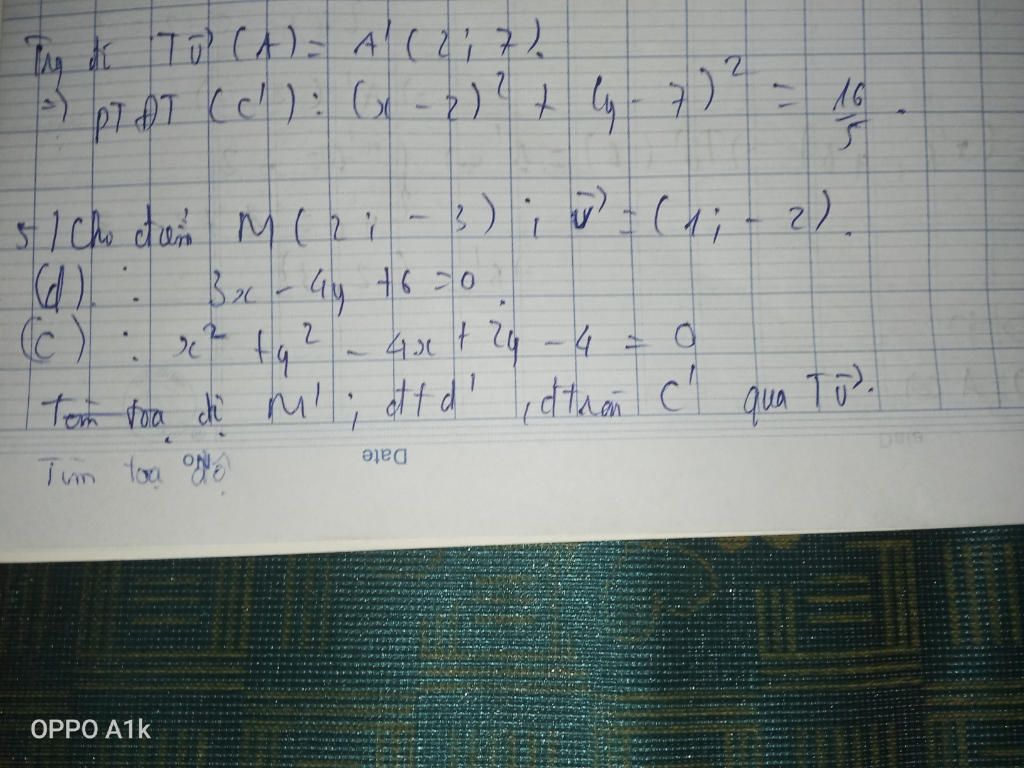 Tog đi Tv⃗ (A) = A' (2; 7).
=) PTĐT (C'): (x - 2)² + (y - 7)² = 16/5.
5/ Cho điểm M (2; -3); v⃗ = (1; -2).
(d): 3x - 4y + 6 = 0.
(C): x² + y² - 4x + 2y - 4 = 0
Tìm toạ độ M'; đtd', đtròn C' qua Tv⃗.
Date
Tìm toạ độ
OPPO A1k